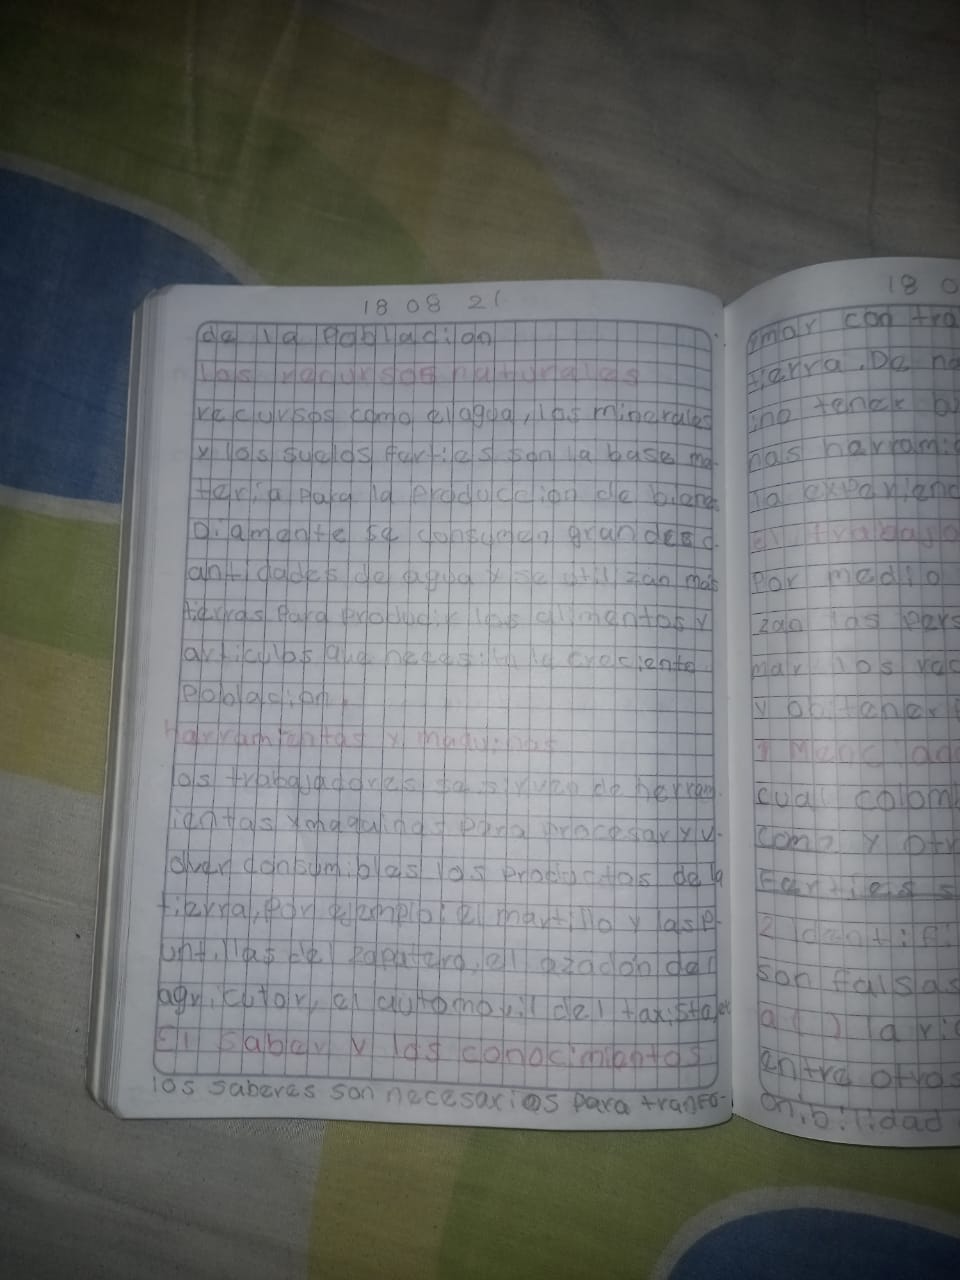 18 08 21
de la Poblacion
las recursos naturales
recursos como el agua, los minerales
y los suelos ferties son la base ma-
teria para la Produccion de bienes
Diamente se consumen grandes c
antidades de agua y se utilizan mas
tierras Para Producir los alimentos y
articulos que necesita la creciente
Poblacion.
Harramientas y maquinas
los trabajadores se sirven de herram
ientas y maquinas para procesar y v-
olver consumibles los Productos de la
tierra, por ejemplo: el martillo y las P-
untillas del zapatero, el azadon del
agricutor, el automovil del taxista,
El saber y los conocimientos
los saberes son necesarios para tranfo-
18 0
rmar con tra
tierra. De no
ino tener
nas harrami
la experienc
el trabajo
Por medio
zan las pers
mar los rec
y obtener
1 Menc
cual colom
como y otr
Farties s
2 Identifi
son falsas
a ( ) la ri
entre otros
onibilidad